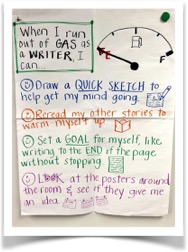 When I run
out of GAS as
a WRITER, I
can...
E
F
Draw a QUICK SKETCH to
help get my mind going.
Reread my other stories to
warm myself up
Set a GOAL for myself, like
writing to the END if the page
without stopping.
LOOK at the posters around
the room & see if they give me
an idea.